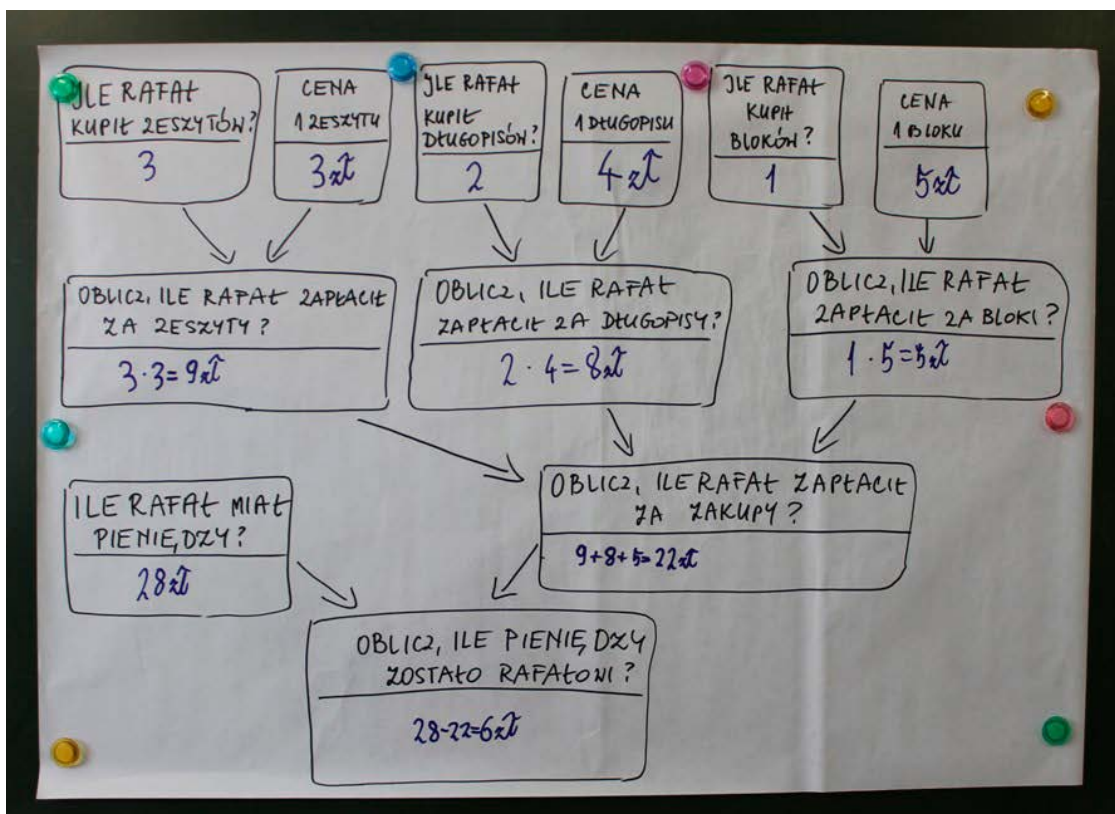 ILE RAFAŁ
KUPIŁ ZESZYTÓW?
3
CENA
1 ZESZYTU
3 zł
ILE RAFAŁ
KUPIŁ
DŁUGOPISÓW?
2
CENA
1 DŁUGOPISU
4 zł
ILE RAFAŁ
KUPIŁ
BLOKÓW?
1
CENA
1 BLOKU
5 zł
OBLICZ, ILE RAFAŁ ZAPŁACIŁ
ZA ZESZYTY?
3·3=9 zł
OBLICZ, ILE RAFAŁ
ZAPŁACIŁ ZA DŁUGOPISY?
2·4=8 zł
OBLICZ, ILE RAFAŁ
ZAPŁACIŁ ZA BLOKI?
1·5=5 zł
ILE RAFAŁ MIAŁ
PIENIĘDZY?
28 zł
OBLICZ, ILE RAFAŁ ZAPŁACIŁ
ZA ZAKUPY?
9+8+5=22 zł
OBLICZ, ILE PIENIĘDZY
ZOSTAŁO RAFAŁOWI?
28-22=6 zł